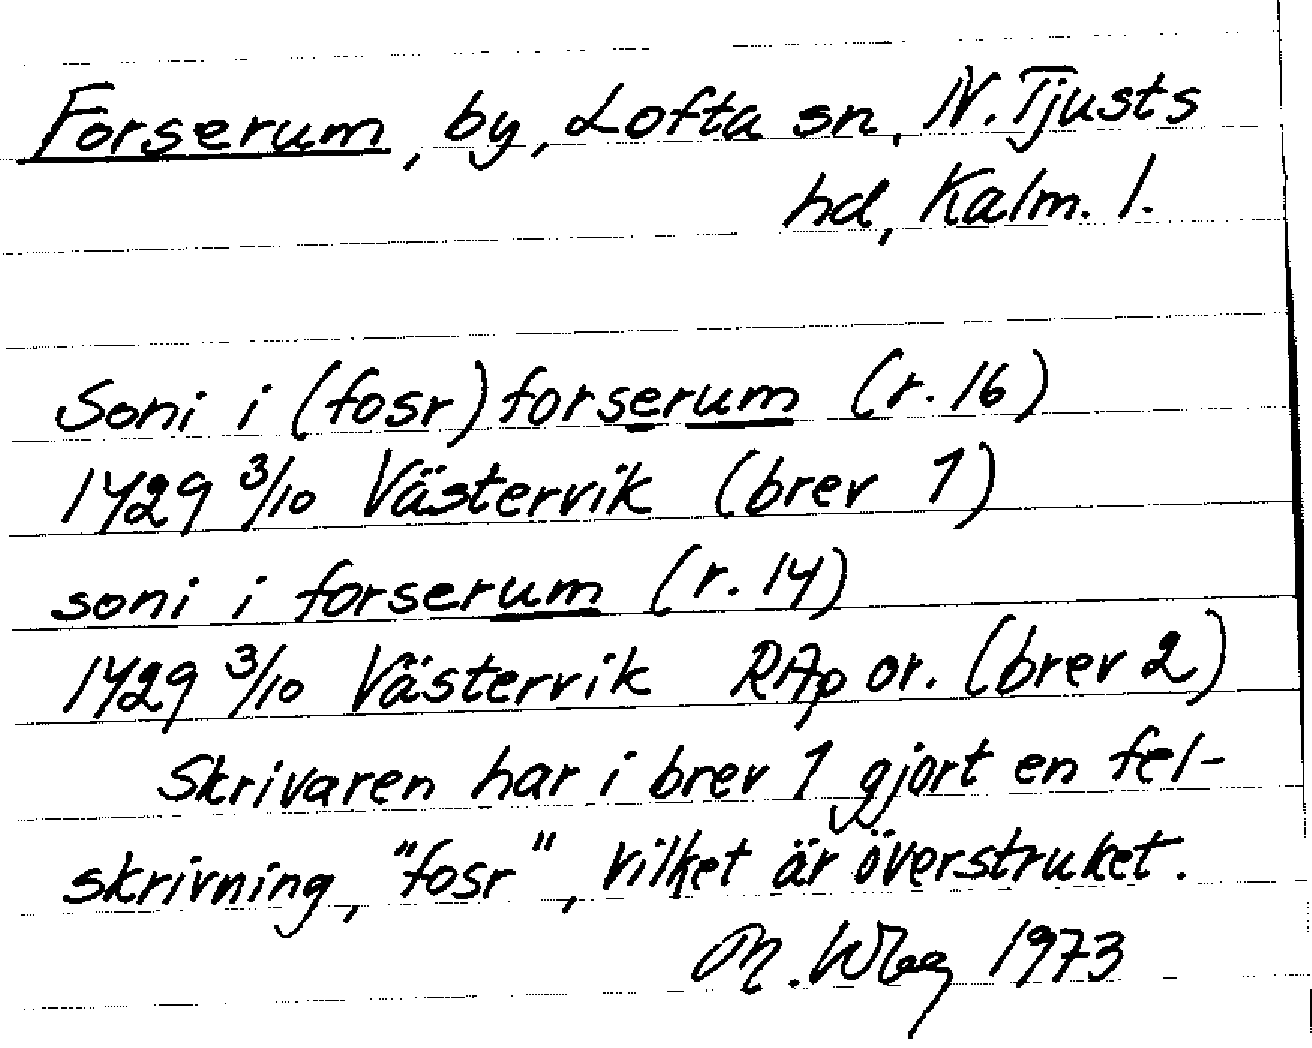 Forserum, by, Lofta sn, N. Tjusts
hd, Kalm. l.
Soni i (fosr) forserum (r. 16)
1429 3/10 Västervik (brev 1)
soni i forserum (r. 14)
1429 3/10 Västervik RAp or. (brev 2)
Skrivaren har i brev 1 gjort en fel-
skrivning, "fosr", vilket är överstruket.
M. Wbg 1973